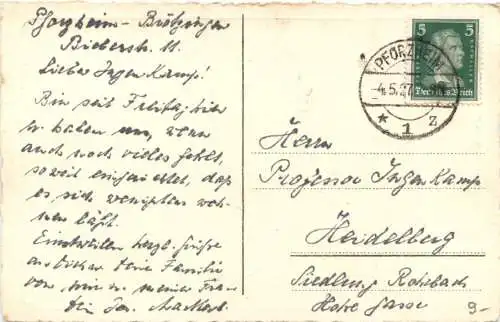 Pforzheim-Brötzingen
Bieberstr. 11.
Lieber Ingenkamp!
Bin seit Freitag hier
u. haben uns, wenn
auch noch vieles fehlt,
soweit eingerichtet, daß
es sich wenigstens woh-
nen läßt.
Einstweilen herzl. Grüße
an Dich u. Deine Familie
von mir u. meiner Frau
Dein
5 5
Deutsches Reich
PFORZHEIM
-4.5.27
* 1 z
Herrn
Professor Ingenkamp
Heidelberg
Siedlung Rohrbach
Hohe Gasse
9-